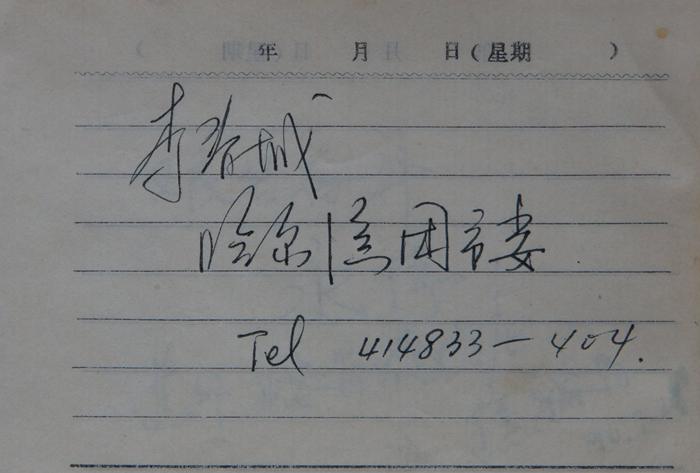 年 月 日(星期 )
李春城
哈尔滨团市委.
Tel 414833-404.